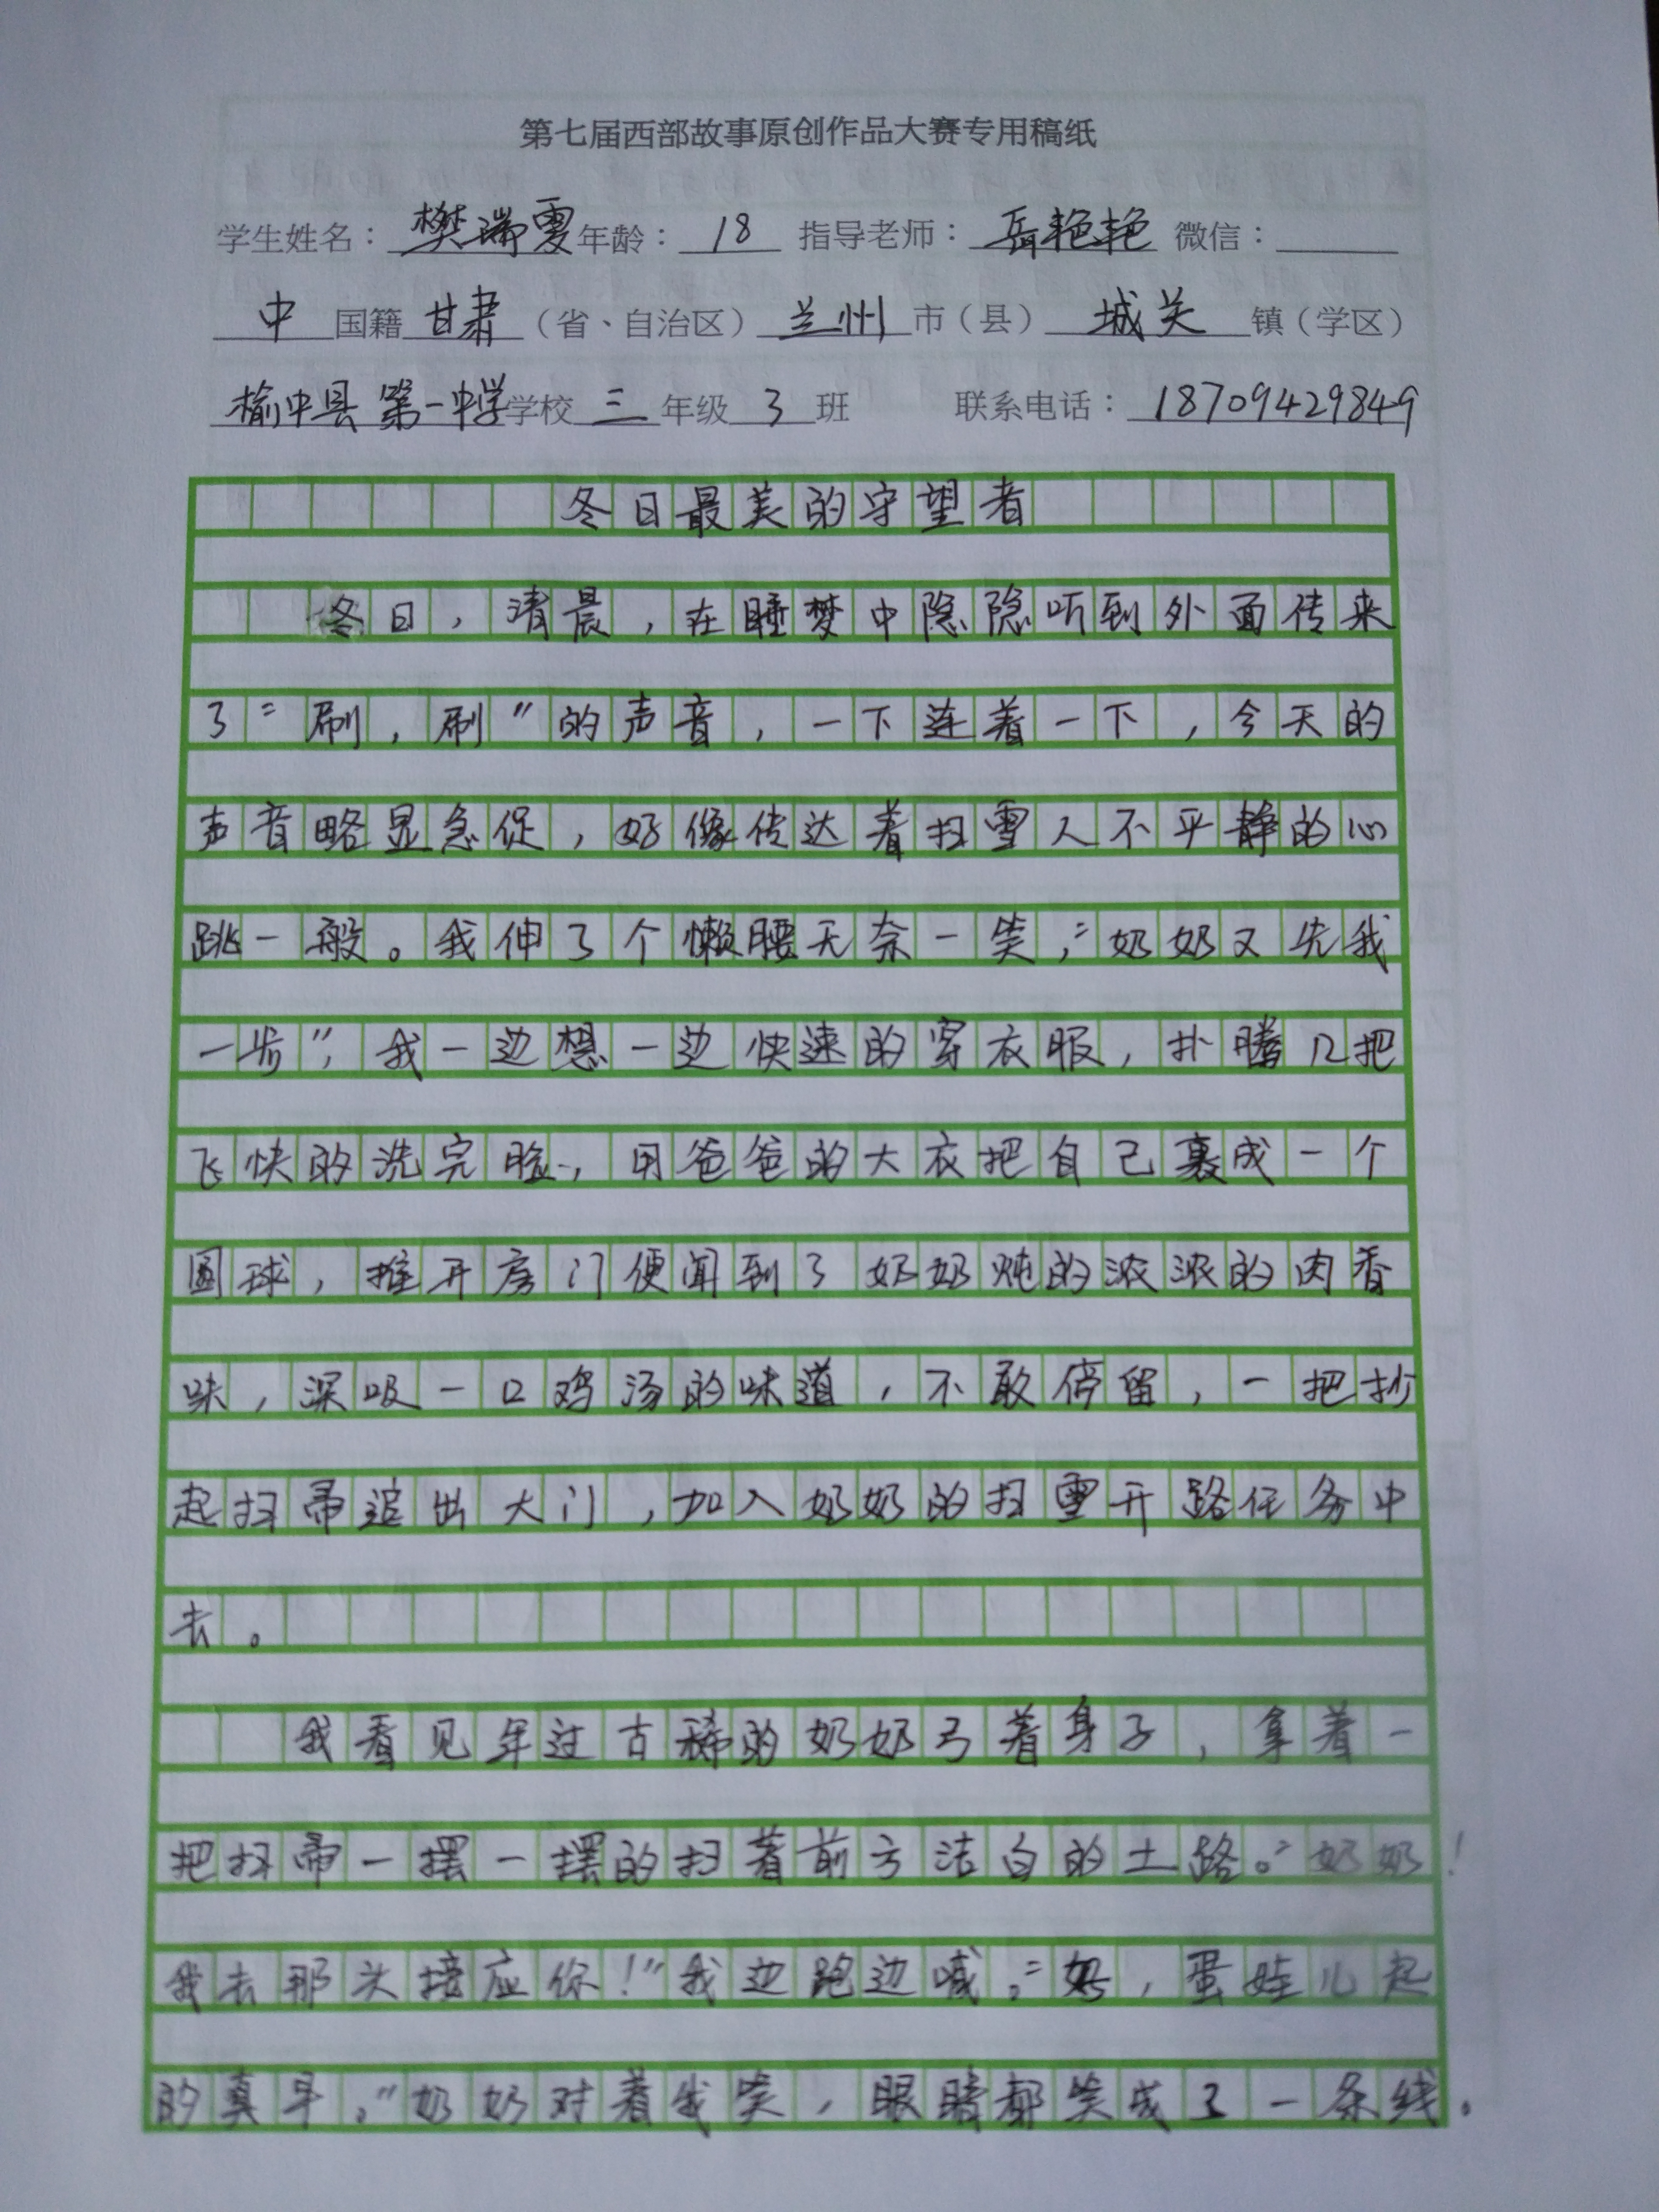 第七届西部故事原创作品大赛专用稿纸
学生姓名：樊瑞雯年龄：18 指导老师：岳艳艳 微信：
中国籍甘肃（省、自治区）兰州市（县）城关镇（学区）
榆中县第一中学学校三年级3班 联系电话：18709429849
冬日最美的守望者
冬日，清晨，在睡梦中隐隐听到外面传来
了“刷，刷”的声音，一下连着一下，今天的
声音略显急促，好像传达着扫雪人不平静的心
跳一般。我伸了个懒腰无奈一笑，“奶奶又先我
一步”，我一边想一边快速的穿衣服，扑腾几把
飞快的洗完脸，用爸爸的大衣把自己裹成一个
圆球，推开房门便闻到了奶奶炖的浓浓的肉香
味，深吸一口鸡汤的味道，不敢停留，一把抄
起扫帚追出大门，加入奶奶的扫雪开路任务中
去。
我看见年过古稀的奶奶弓着身子，拿着一
把扫帚一摆一摆的扫着前方洁白的土路。“奶奶！
我去那头接应你！”我边跑边喊。“好，蛋娃儿起
的真早。”奶奶对着我笑，眼睛都笑成了一条线。